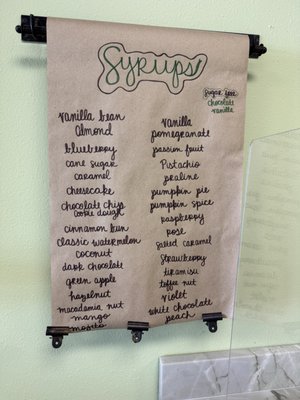 Syrups
sugar free
chocolate
vanilla
vanilla bean
almond
blueberry
cane sugar
caramel
cheesecake
chocolate chip
cookie dough
cinnamon bun
classic watermelon
coconut
dark chocolate
green apple
hazelnut
macadamia nut
mango
mojito
vanilla
pomegranate
passion fruit
Pistachio
praline
pumpkin pie
pumpkin spice
raspberry
rose
salted caramel
strawberry
tiramisu
toffee nut
violet
white chocolate
peach